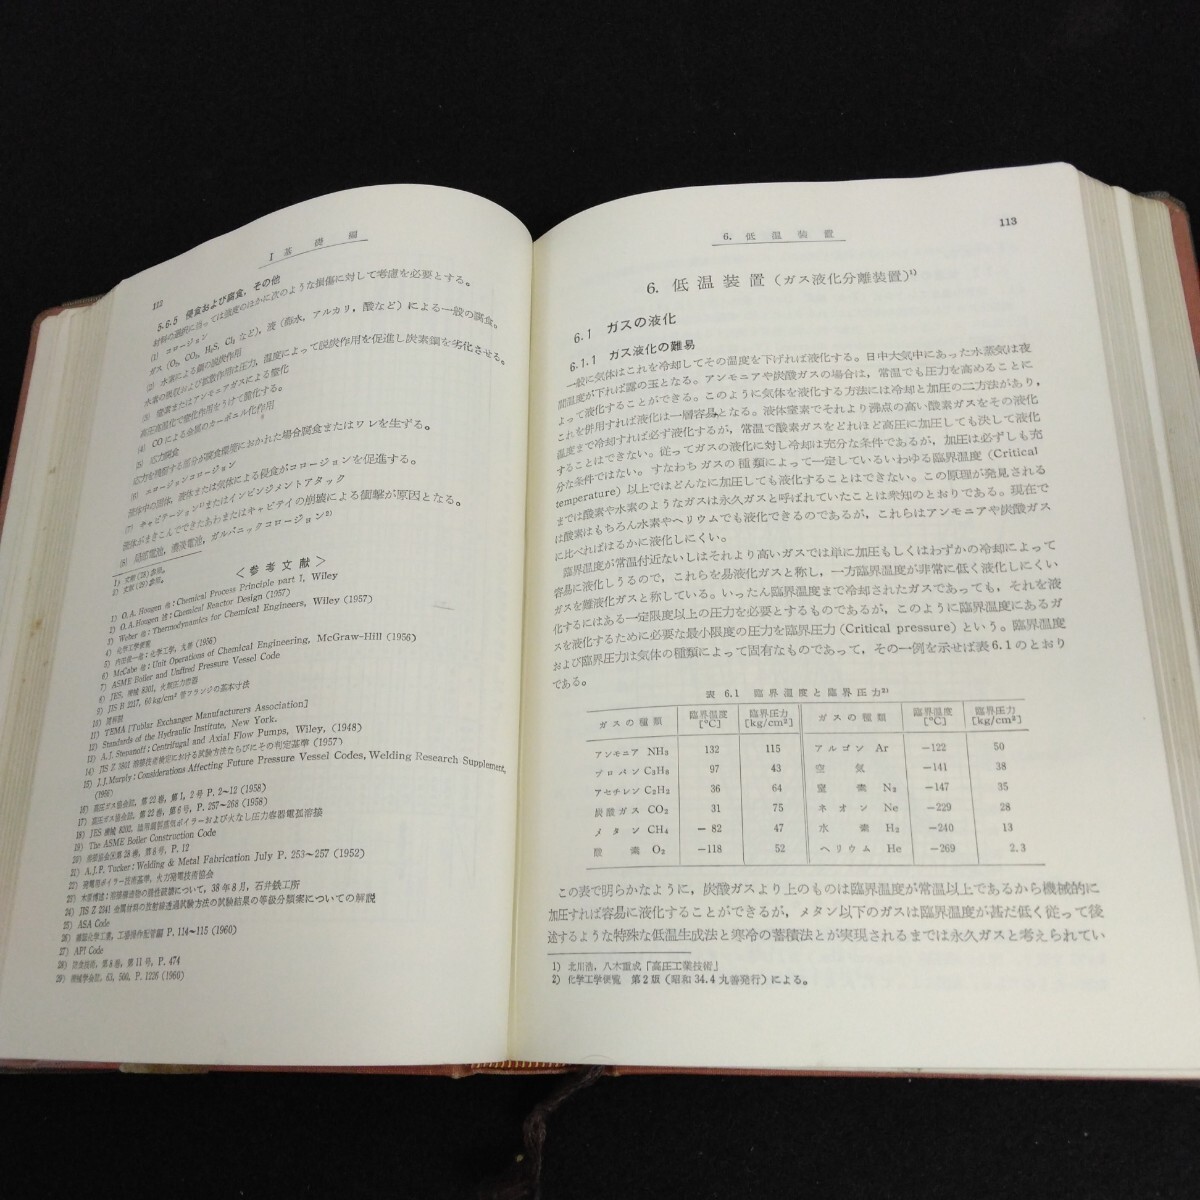 112
I 基 礎 編
5.6.5 侵食および腐食,その他
材料の選択に当っては強度のほかに次のような損傷に対して考慮を必要とする。
(1) コロージョン
ガス (O₂, CO₂, H₂S, Cl₂ など),液(海水,アルカリ,酸など)による一般の腐食。
(2) 水素による鋼の脱炭作用
水素の吸収および拡散作用は圧力,温度によって脱炭作用を促進し炭素鋼を劣化させる。
(3) 窒素またはアンモニアガスによる窒化
高圧高温化で窒化作用をうけて脆化する。
(4) COによる金属のカーボニル化作用
(5) 応力腐食
応力を残留する部分が腐食環境におかれた場合腐食またはワレを生ずる。
(6) エロージョンコロージョン
液体中の固体,液体または気体による侵食がコロージョンを促進する。
(7) キャビテーション¹⁾またはインピンジメントアタック
液体がまきこんでできたあわまたはキャビテイの崩壊による衝撃が原因となる。
(8) 局部電池,濃淡電池,ガルバニックコロージョン²⁾
1) 文献 (28) 参照。
2) 文献 (29) 参照。
<参 考 文 献>
1) O.A. Hougen 他:Chemical Process Principle part I, Wiley
2) O.A. Hougen 他:Chemical Reactor Design (1957)
3) Weber 他:Thermodynamics for Chemical Engineers, Wiley (1957)
4) 化学工学便覧
5) 内田俊一他:化学工学,丸善 (1956)
6) McCabe 他:Unit Operations of Chemical Engineering, McGraw-Hill (1956)
7) ASME Boiler and Unfired Pressure Vessel Code
8) JES,機械 8301,火無圧力容器
9) JIS B 2217, 60 kg/cm² 管フランジの基本寸法
11) TEMA [Tublar Exchanger Manufacturers Association]
12) Standards of the Hydraulic Institute, New York.
13) A.J. Stepanoff:Centrifugal and Axial Flow Pumps, Wiley, (1948)
14) JIS Z 3801 溶接技術検定における試験方法ならびにその判定基準 (1957)
15) J.J. Murply:Considerations Affecting Future Pressure Vessel Codes, Welding Research Supplement, (1956)
16) 高圧ガス協会誌,第22巻,第1, 2号 P. 2~12 (1958)
17) 高圧ガス協会誌,第22巻,第6号,P. 257~268 (1958)
18) JES 機械 8202,陸用鋼製蒸気ボイラーおよび火なし圧力容器電弧溶接
19) The ASME Boiler Construction Code
20) 溶接協会誌第28巻,第8号,P. 12
21) A.J.P. Tucker:Welding & Metal Fabrication July P. 253~257 (1952)
22) 発電用ボイラー技術基準,火力発電技術協会
23) 木原博述:溶接構造物の脆性破壊について,38年8月,石井鉄工所
24) JIS Z 2341 金属材料の放射線透過試験方法の試験結果の等級分類案についての解説
25) ASA Code
26) 確認化学工業,工場操作配管編 P. 114~115 (1960)
27) API Code
28) 防食技術,第8巻,第11号,P. 474
29) 機械学会誌,63, 500, P. 1226 (1960)
6. 低 温 装 置
113
6. 低 温 装 置(ガス液化分離装置)¹⁾
6.1 ガスの液化
6.1.1 ガス液化の難易
一般に気体はこれを冷却してその温度を下げれば液化する。日中大気中にあった水蒸気は夜
間温度が下れば露の玉となる。アンモニアや炭酸ガスの場合は,常温でも圧力を高めることに
よって液化することができる。このように気体を液化する方法には冷却と加圧の二方法があり,
これを併用すれば液化は一層容易となる。液体窒素でそれより沸点の高い酸素ガスをその液化
温度まで冷却すれば必ず液化するが,常温で酸素ガスをどれほど高圧に加圧しても決して液化
することはできない。従ってガスの液化に対し冷却は充分な条件であるが,加圧は必ずしも充
分な条件ではない。すなわちガスの種類によって一定しているいわゆる臨界温度 (Critical
temperature) 以上ではどんなに加圧しても液化することはできない。この原理が発見される
までは酸素や水素のようなガスは永久ガスと呼ばれていたことは衆知のとおりである。現在で
は酸素はもちろん水素やヘリウムでも液化できるのであるが,これらはアンモニアや炭酸ガス
に比べればはるかに液化しにくい。
臨界温度が常温付近ないしはそれより高いガスでは単に加圧もしくはわずかの冷却によって
容易に液化しうるので,これらを易液化ガスと称し,一方臨界温度が非常に低く液化しにくい
ガスを難液化ガスと称している。いったん臨界温度まで冷却されたガスであっても,それを液
化するにはある一定限度以上の圧力を必要とするものであるが,このように臨界温度にあるガ
スを液化するために必要な最小限度の圧力を臨界圧力 (Critical pressure) という。臨界温度
および臨界圧力は気体の種類によって固有なものであって,その一例を示せば表6.1のとおり
である。
表 6.1 臨界温度と臨界圧力²⁾
ガスの種類 臨界温度 [°C] 臨界圧力 [kg/cm²] ガスの種類 臨界温度 [°C] 臨界圧力 [kg/cm²]
アンモニア NH₃ 132 115 アルゴン Ar −122 50
プロパン C₃H₈ 97 43 空 気 −141 38
アセチレン C₂H₂ 36 64 窒 素 N₂ −147 35
炭酸ガス CO₂ 31 75 ネオン Ne −229 28
メタン CH₄ − 82 47 水 素 H₂ −240 13
酸 素 O₂ −118 52 ヘリウム He −269 2.3
この表で明らかなように,炭酸ガスより上のものは臨界温度が常温以上であるから機械的に
加圧すれば容易に液化することができるが,メタン以下のガスは臨界温度が甚だ低く従って後
述するような特殊な低温生成法と寒冷の蓄積法とが実現されるまでは永久ガスと考えられてい
1) 北川浩,八木重成「高圧工業技術」
2) 化学工学便覧 第2版(昭和34.4丸善発行)による。